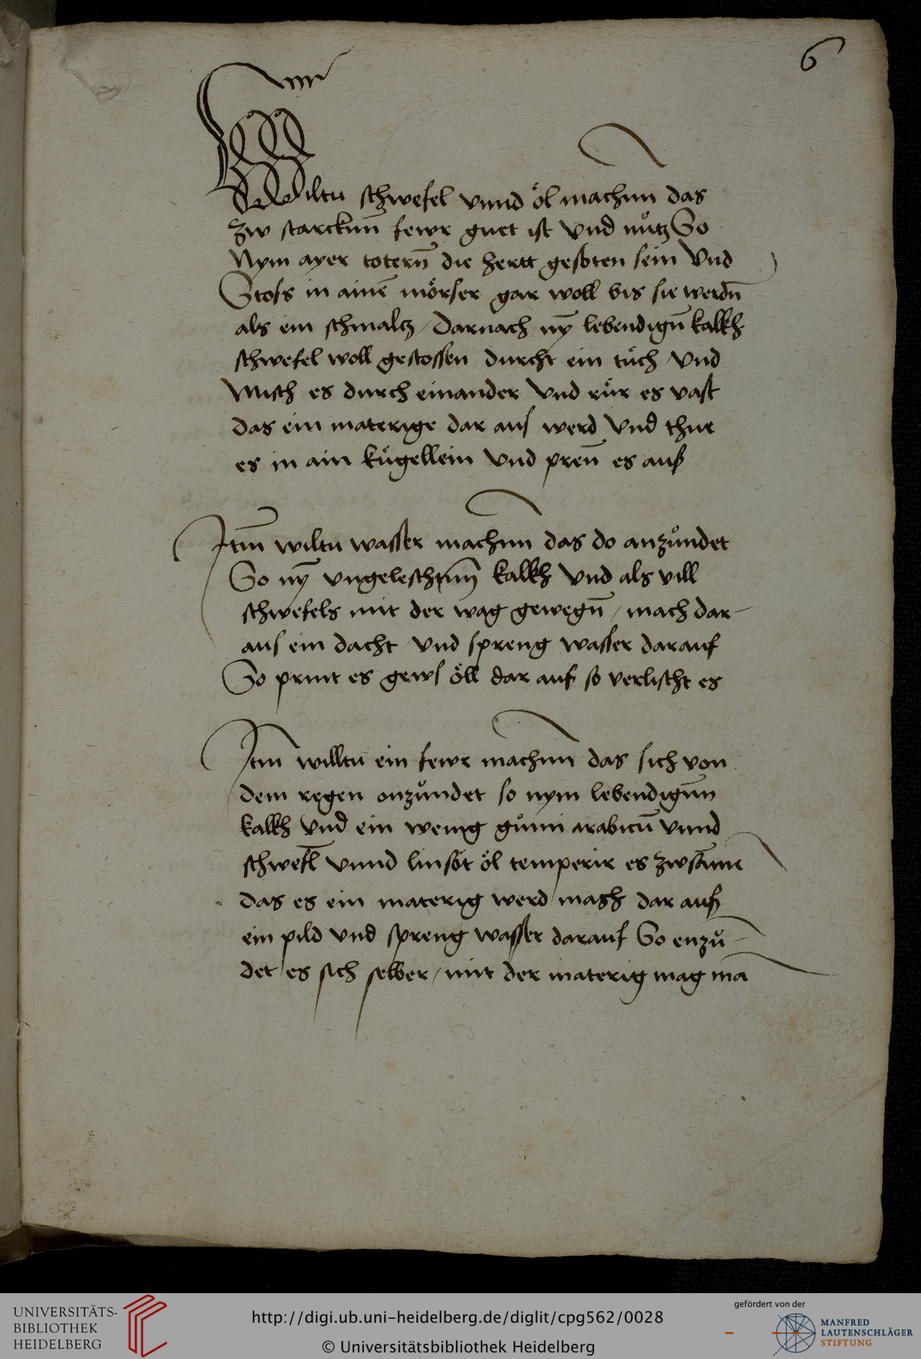 6
Wiltu schwefel vnnd öl machnn das
zw starcknn fewr guet ist vnd nutz So
Nym ayer totern̄ die hertt gesoten sein Vnd
Stoss in ainē mörser gar woll bis sie werdn̄
als ein schmaltz / Darnach ny̅ lebendign̄ kalkh
schwefel woll gestossen durcht ein tuch Vnd
Misch es durch einander Vnd rür es vast
das ein materige dar aus werd Vnd thue
es in ain kügellein Vnd pren̄ es aus
Itm̄ wiltu wasser machnn das do anzündet
So ny̅ vngeleschtnn kalkh Vnd als vill
schwefels mit der wag gewegn̄ / mach dar-
aus ein dacht Vnd spreng wasser darauf
So print es gews öll dar auf so verlischt es
Itm̄ willtu ein fewr machnn das sich von
dem regen onzündet so nym lebendignn
kalkh Vnd ein wenig gumi arabicū vnnd
schwefl̄ vnnd linsöt öl temperir es zwsām̄e
das es ein materig werd mach dar aus
ein pild Vnd spreng wasser darauf So enzü-
det es sich selber / mit der materig mag mā
UNIVERSITÄTS-
BIBLIOTHEK
HEIDELBERG
http://digi.ub.uni-heidelberg.de/diglit/cpg562/0028
© Universitätsbibliothek Heidelberg
gefördert von der
MANFRED
LAUTENSCHLÄGER
STIFTUNG